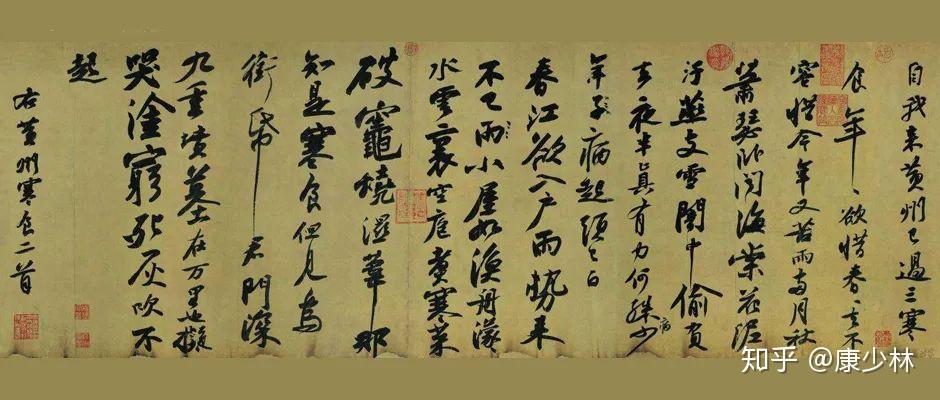 自我來黃州已過三寒
食年〻欲惜春〻去不
容惜今年又苦雨兩月秋
蕭瑟臥聞海棠花泥
汙燕支雪闇中偷負
去夜半真有力何殊病少
年子病起頭已白
春江欲入戶雨勢來
不已雨小屋如漁舟濛〻
水雲裏空庖煮寒菜
破竈燒濕葦那
知是寒食但見烏
銜帋君門深
九重墳墓在万里也擬
哭塗窮死灰吹不
起
右黃州寒食二首
知乎 @康少林